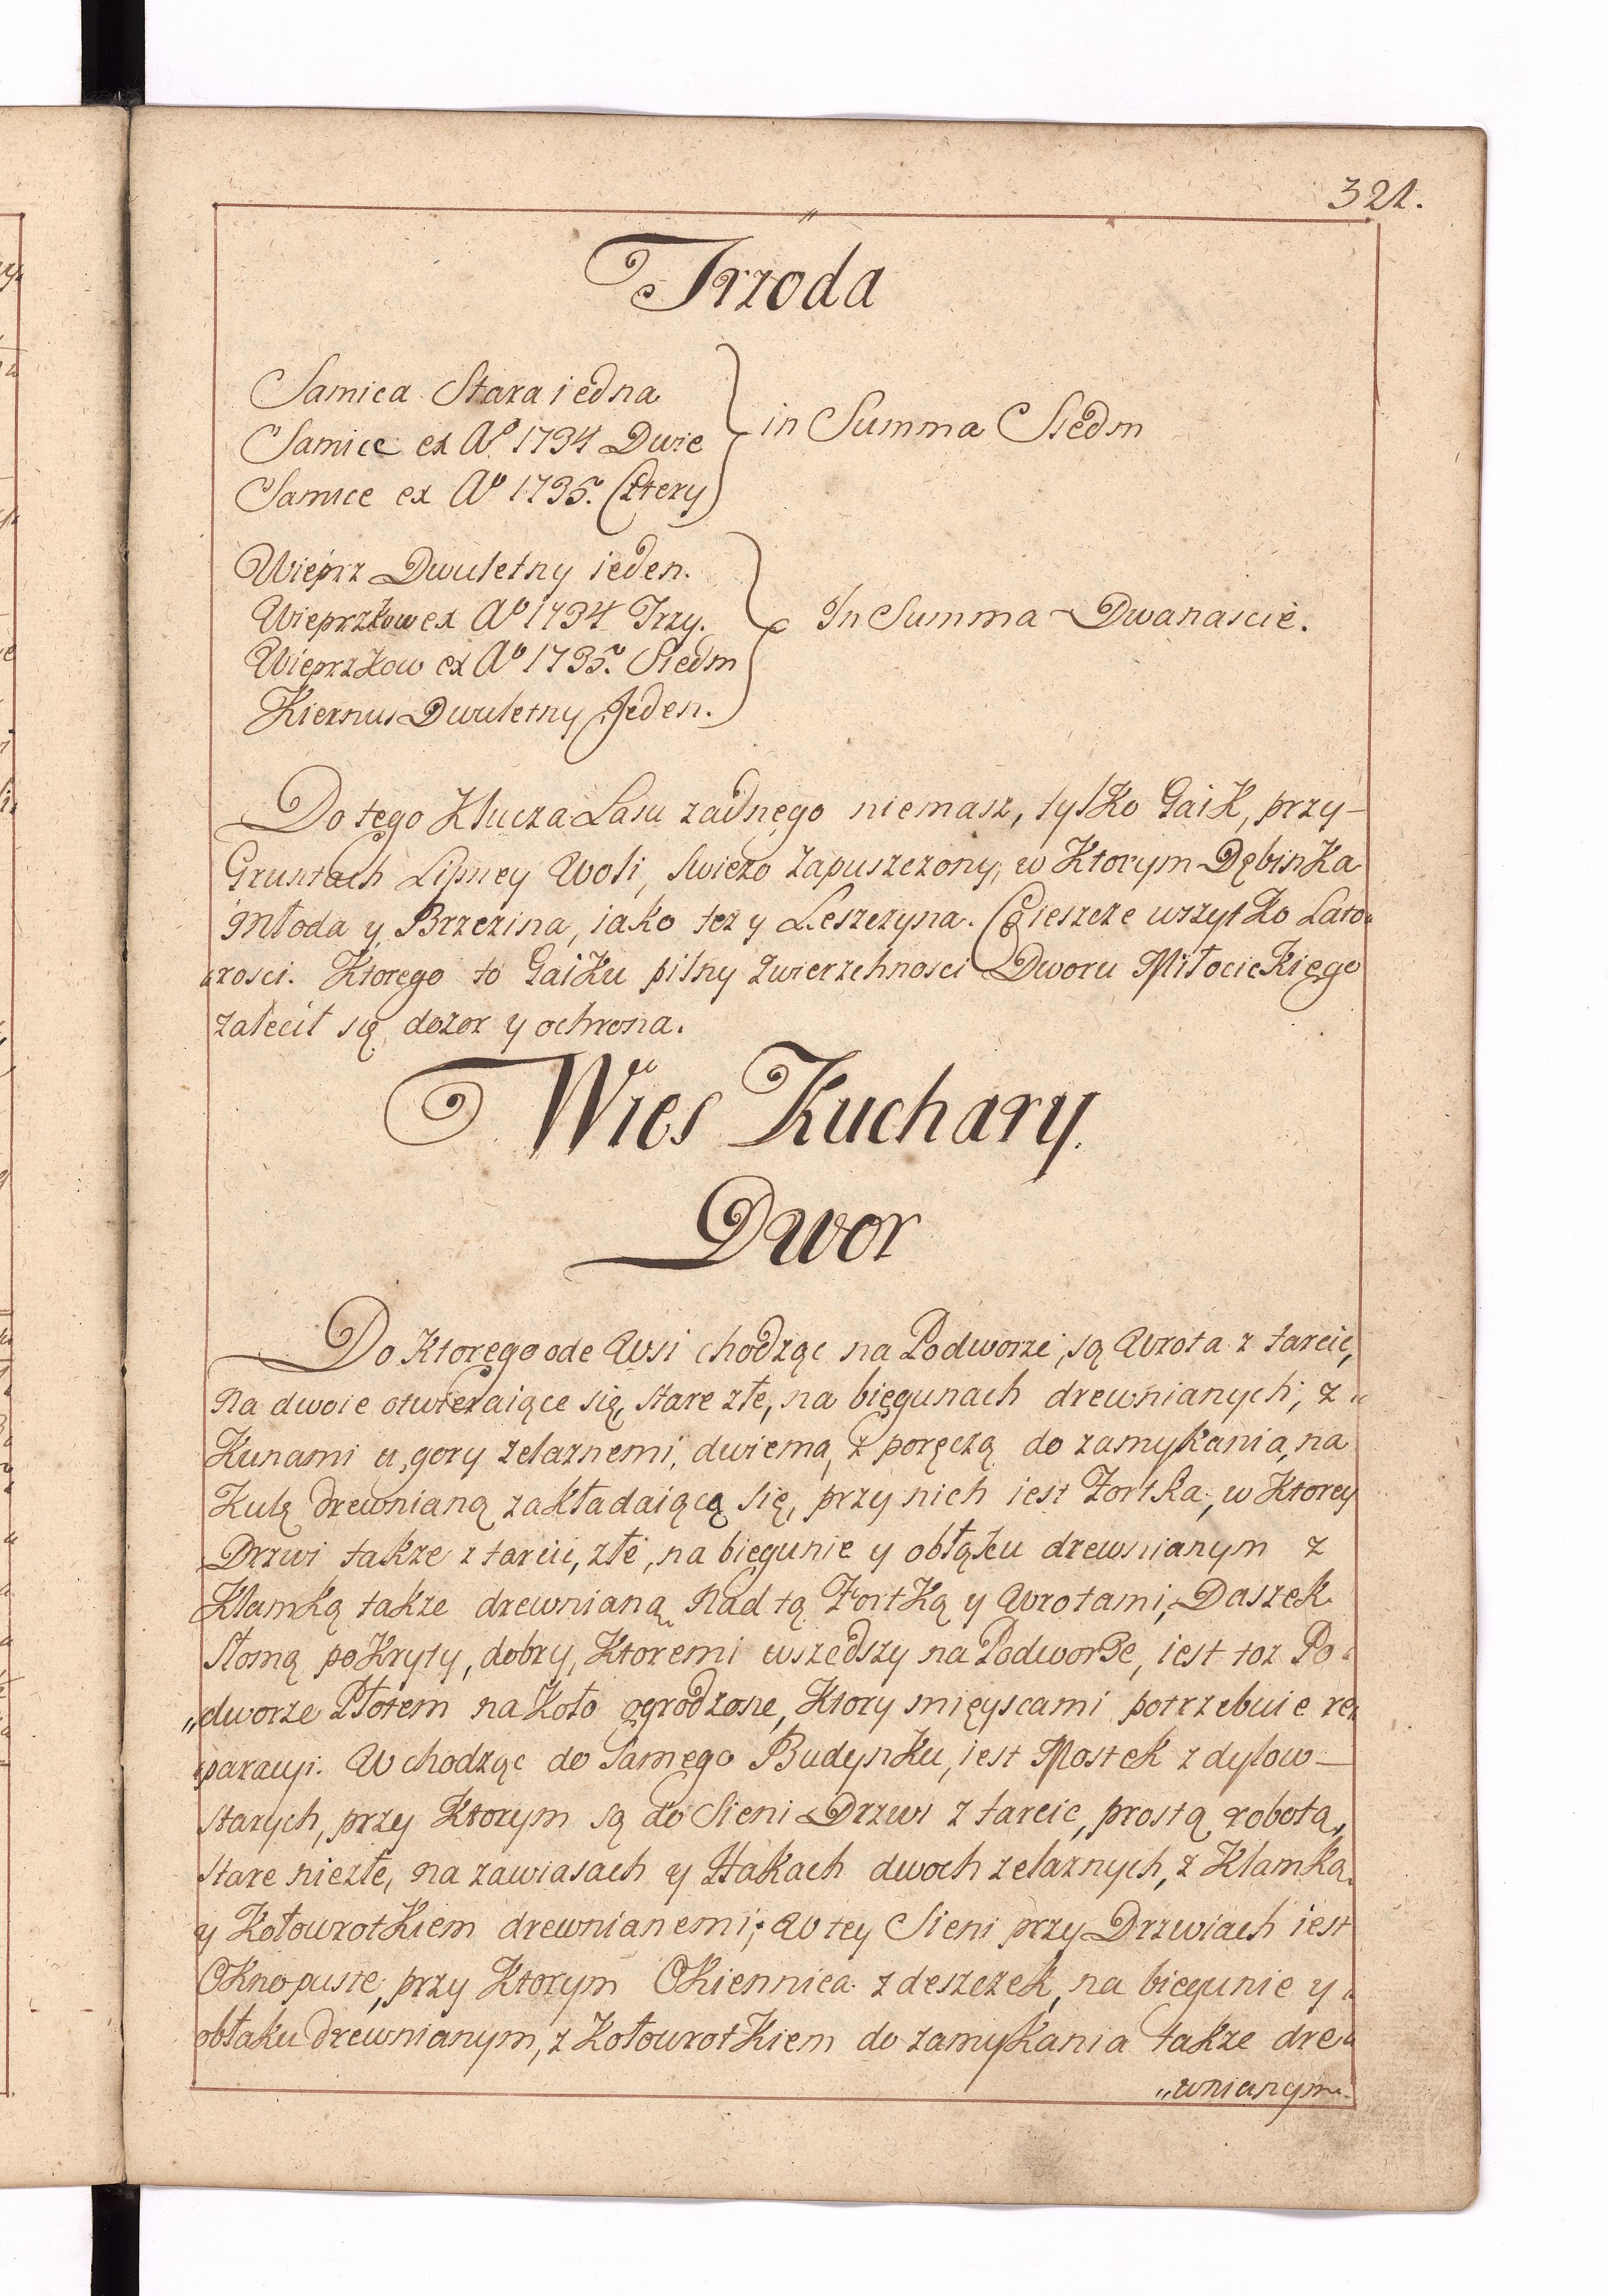 321.
Trzoda
Samica Stara iedna
Samice ex Aº 1734 Dwie
Samice ex Aº 1735. Cztery
in Summa Siedm
Wieprz Dwuletny ieden.
Wieprzkow ex Aº 1734 Trzy.
Wieprzkow ex Aº 1735. Siedm
Kiernus Dwuletny Jeden.
In Summa Dwanascie.
Do tego Klucza Lasu zadnego niemasz, tylko Gaik, przy-
Gruntach Lipney Woli, swiezo zapuszczony, w Ktorym Dębinka
Młoda y Brzezina, iako tez y Leszczyna. ieszcze wszytko Lato-
rosci. Ktorego to Gaiku pilny Zwierzchnosci Dworu Miłocickiego
zalecił się dozor y ochrona.
Wies Kuchary.
Dwor
Do Ktorego ode Wsi chodząc na Podworze, są Wrota z tarcic,
na dwoie otwieraiące się, stare złe, na biegunach drewnianych, z
Kunami u gory zelaznemi, dwiema, z poręczą do zamykania, na
Kulę drewnianą zakładaiącą się, przy nich iest Fortka, w Ktorey
Drzwi takze z tarcic, złe, na biegunie y obłąku drewnianym z
Klamką takze drewnianą. Nad tą Fortką y Wrotami, Daszek
Słomą pokryty, dobry, Ktoremi wszedszy na Podworze, iest toz Po-
„dworze Płotem na Koło ogrodzone, Ktory mięyscami potrzebuie re-
„paracyi. Wchodząc do samego Budynku, iest Mostek z dylow-
starych, przy Ktorym są do Sieni Drzwi z tarcic, prostą robotą,
stare niezłe, na zawiasach y Hakach dwoch zelaznych, z Klamką
y Kołowrotkiem drewnianemi; W tey Sieni przy Drzwiach iest
Okno puste, przy Ktorym Okiennica z deszczek, na biegunie y
obłaku drewnianym, z Kołowrotkiem do zamykania takze dre-
„wnianym.